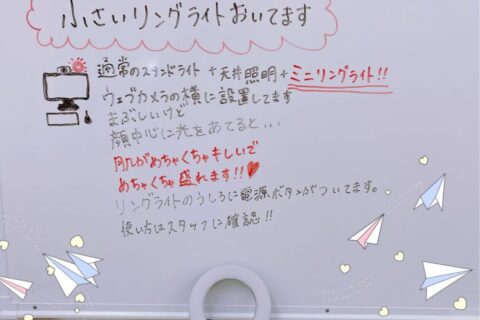 小さいリングライトおいてます
通常のスタンドライト + 天井照明 + ミニリングライト!!
ウェブカメラの横に設置してます
まぶしいけど
顔中心に光をあてると...
肌がめちゃくちゃキレイで
めちゃくちゃ盛れます!!♥
リングライトのうしろに電源ボタンがついてます。
使い方はスタッフに確認!!